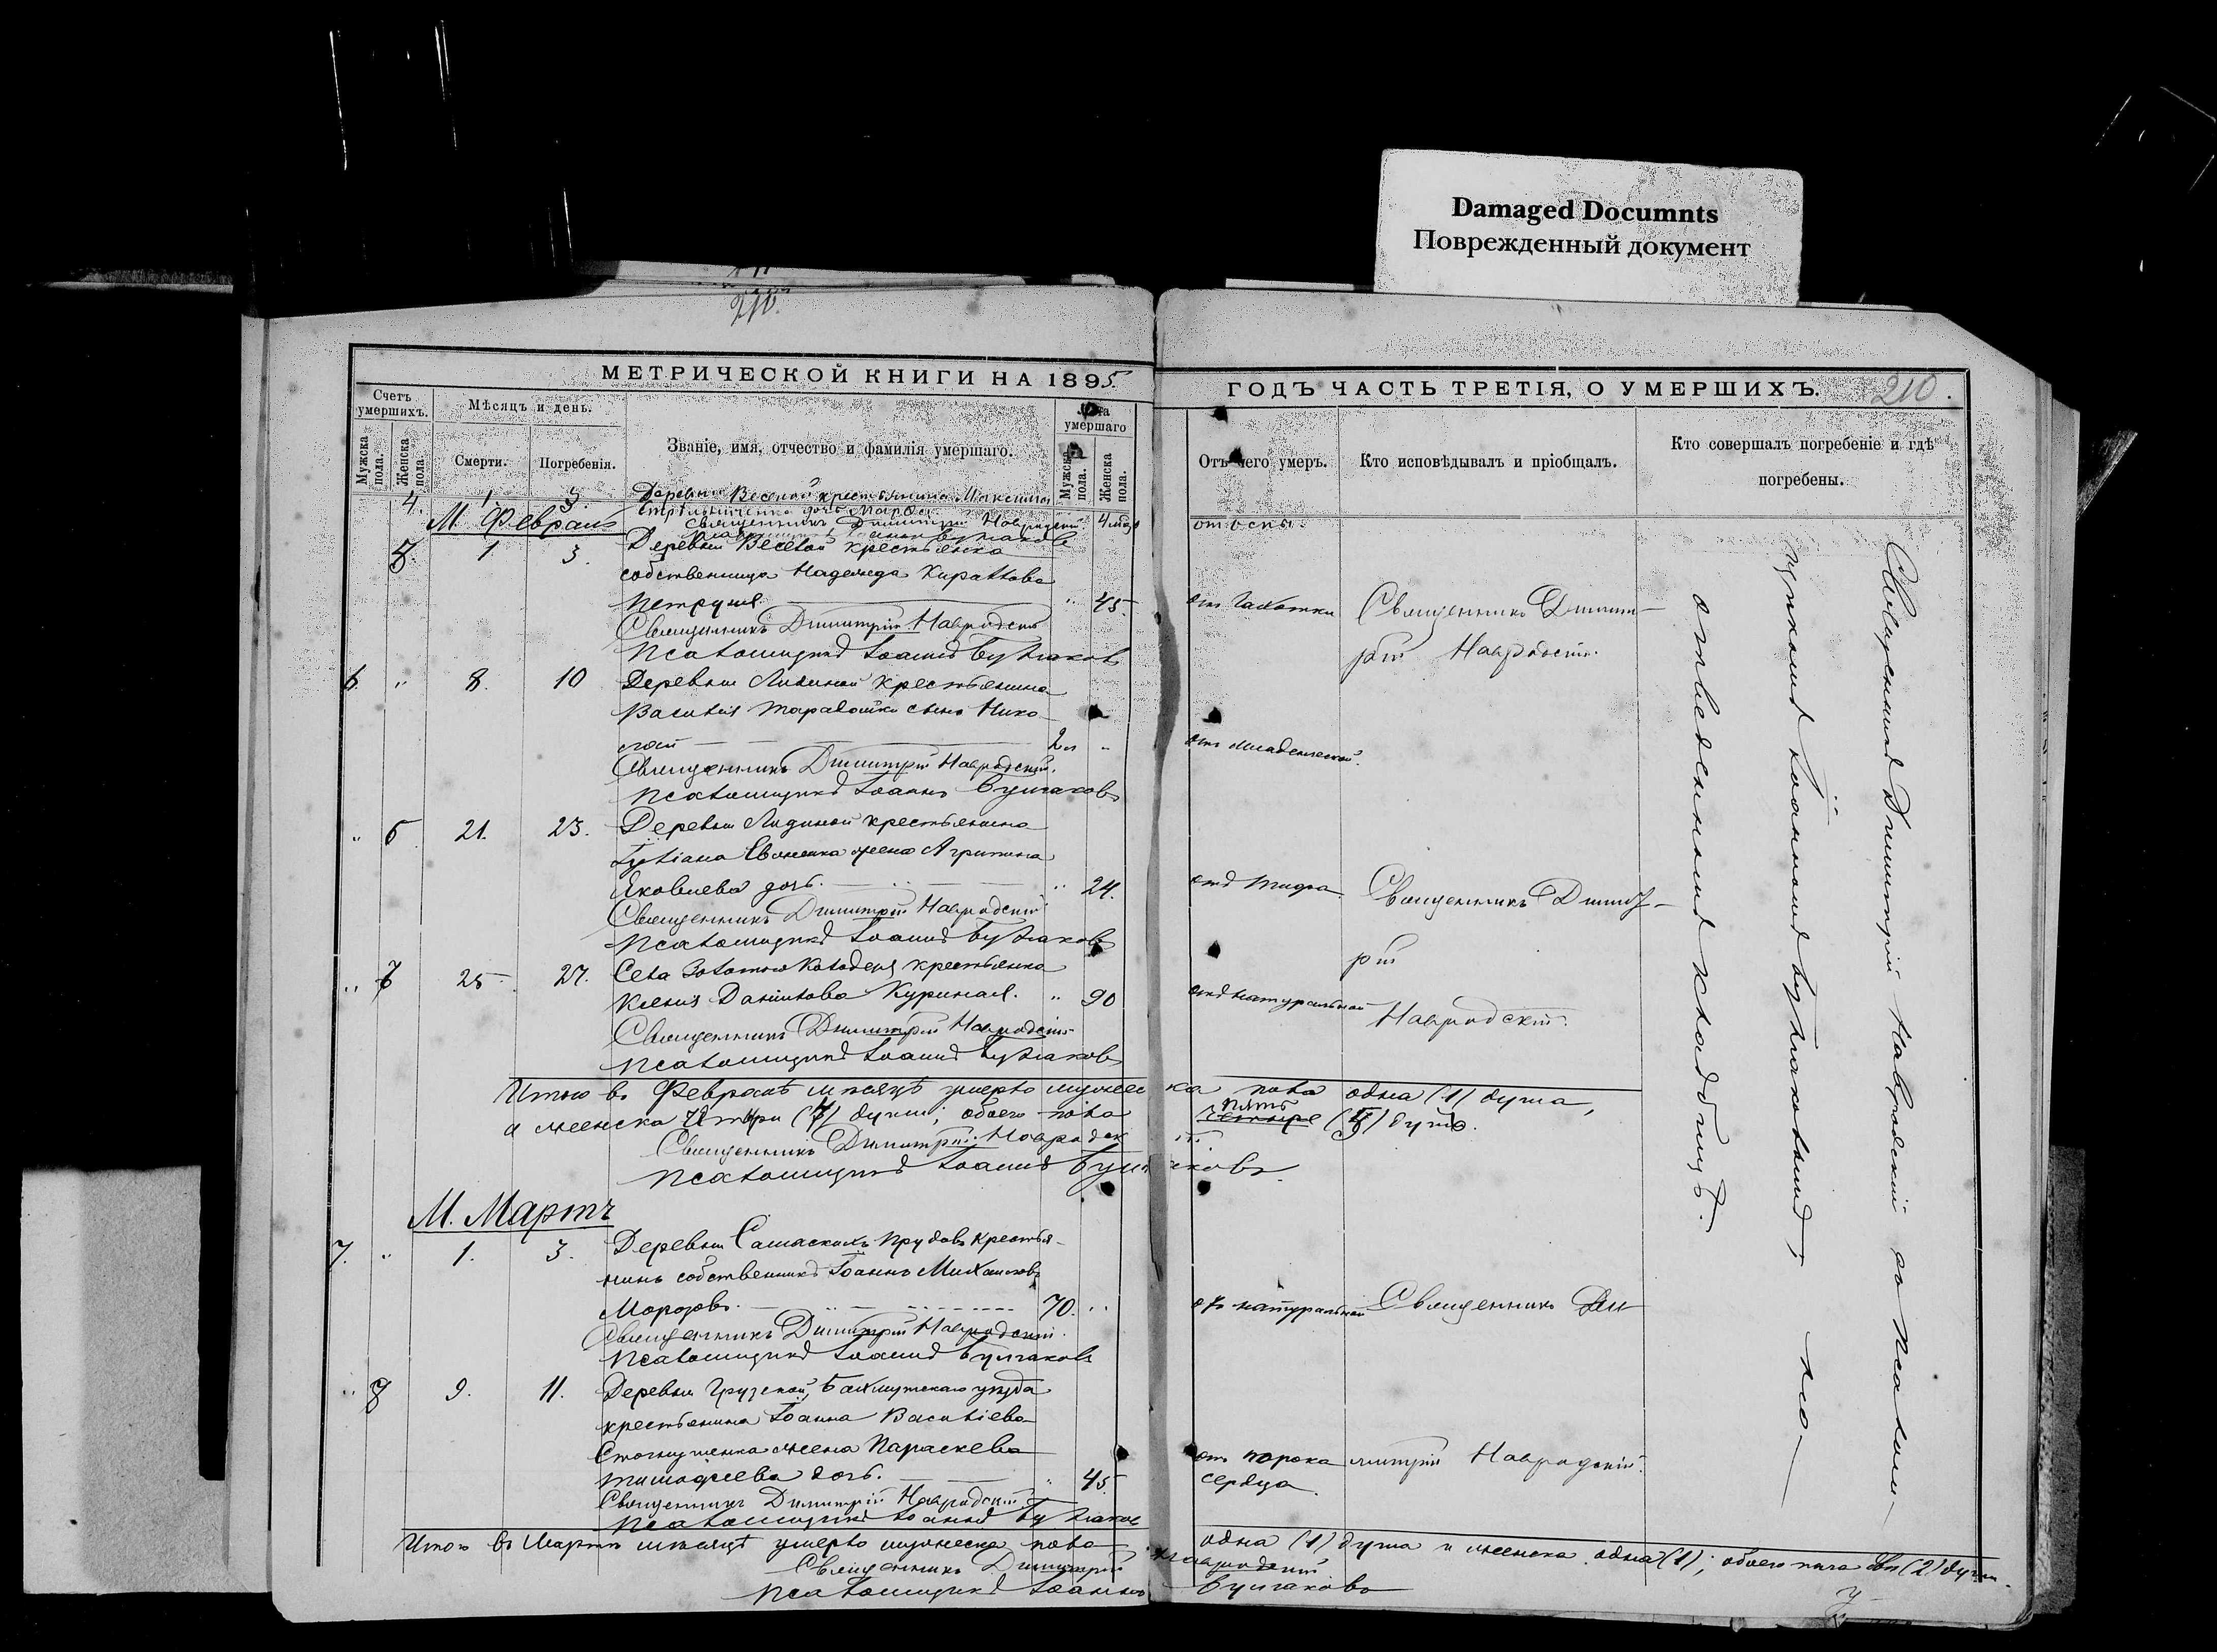 Damaged Documnts
Поврежденный документ
210.
МЕТРИЧЕСКОЙ КНИГИ НА 1895
ГОДЪ ЧАСТЬ ТРЕТІЯ, О УМЕРШИХЪ.
210.
Счетъ умершихъ.
Мужска пола.
Женска пола.
Мѣсяцъ и день.
Смерти.
Погребенія.
Званіе, имя, отчество и фамилія умершаго.
Лѣта умершаго
Мужска пола.
Женска пола.
Отъ чего умеръ.
Кто исповѣдывалъ и пріобщалъ.
Кто совершалъ погребеніе и гдѣ погребены.
4. 1. 3. Деревни Веселой крестьянина Максима
дочь Марфа
Священникъ Димитрій Навродскій 4 отъ оспы.
М. Февраль
5. 1 3. Деревни Веселой крестьянка
собственница Надежда
" 45. отъ чахотки Священникъ Димит-
рій Навродскій.
Священникъ Димитрій Навродскій
Псаломщикъ Іоаннъ Булгаковъ
6. " 8. 10 Деревни крестьянина
Василія сынъ Нико-
лай 2 " отъ младенческой.
Священникъ Димитрій Навродскій.
Псаломщикъ Іоаннъ Булгаковъ
" 6 21. 23. Деревни крестьянина
жена Агрипина
Яковлева дочь. " 24. отъ тифа Священникъ Димит-
рій
Священникъ Димитрій Навродскій
Псаломщикъ Іоаннъ Булгаковъ
" 7 25 27. Села Золотого Колодезя крестьянка
Ксенія Даніилова " 90 отъ натуральной Навродскій.
Священникъ Димитрій Навродскій
Псаломщикъ Іоаннъ Булгаковъ
Итого въ Февралѣ мѣсяцѣ умерло мужеска пола одна (1) душа,
а женска души; обоего пола пять четыре (5) душъ.
Священникъ Димитрій Навродскій
Псаломщикъ Іоаннъ Булгаковъ.
М. Мартъ
7. " 1. 3. Деревни Прудовъ крестья-
нинъ собственникъ Іоаннъ Михаиловъ
Морозовъ. 70. " отъ натуральной Священникъ Ди-
Священникъ Димитрій Навродскій.
Псаломщикъ Іоаннъ Булгаковъ
" 8 9. 11. Деревни Грузской, Бахмутскаго уѣзда
крестьянина Іоанна Василіева
жена Параскева
Тимофеева дочь. " 45. отъ порока сердца. митрій Навродскій.
Священникъ Димитрій Навродскій
Псаломщикъ Іоаннъ Булгаков
Итого въ Мартѣ мѣсяцѣ умерло мужеска пола одна (1) душа и женска одна (1); обоего пола двѣ (2) души.
Священникъ Димитрій Навродскій
Псаломщикъ Іоаннъ Булгаковъ
Священникъ Димитрій Навродскій со псалом-
щикомъ Іоанномъ Булгаковымъ, на
отведенномъ кладбищѣ.